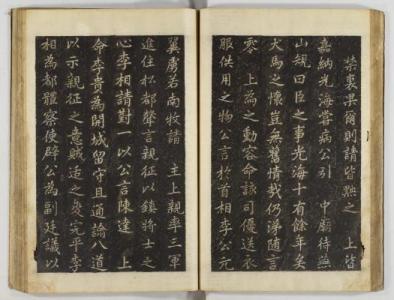 禁裏果爾則請皆黜之 上皆
嘉納光海嘗病公引 中廟待燕
山規曰臣之事光海十有餘年矣
犬馬之懷豈無舊情哉仍涕隨言
零 上為之動容命該司優送衣
服供用之物公言於首相李公元
翼虜若南牧請 主上親率三軍
進住松都聲言親征以鎮將士之
心李相請對一以公言陳達 上
命李貴為開城留守且通諭八道
以示親征之意賊适之變完平李
相為都體察使辟公為副廷議以